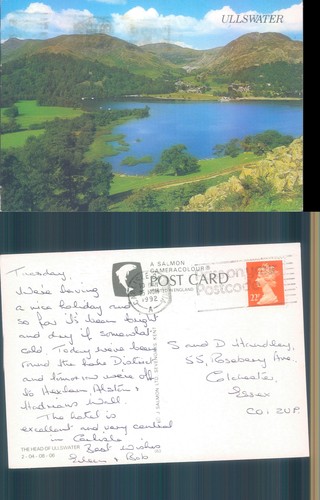 ULLSWATER
A SALMON
CAMERACOLOUR®
POST CARD
PRINTED IN ENGLAND
1992
Postcode
Tuesday,
We're having
a nice holiday and
so far it's been bright
and dry if somewhat
cold. Today we've been
round the Lake District
and tomorrow we're off
to Hexham, Alston &
Hadrians Wall.
The hotel is
excellent and very central
in Carlisle.
Best Wishes
Eileen & Bob
THE HEAD OF ULLSWATER
2-04-06-06
S and D Hrindley,
55, Rosebery Ave.
Colchester,
Essex
CO1 2UP.